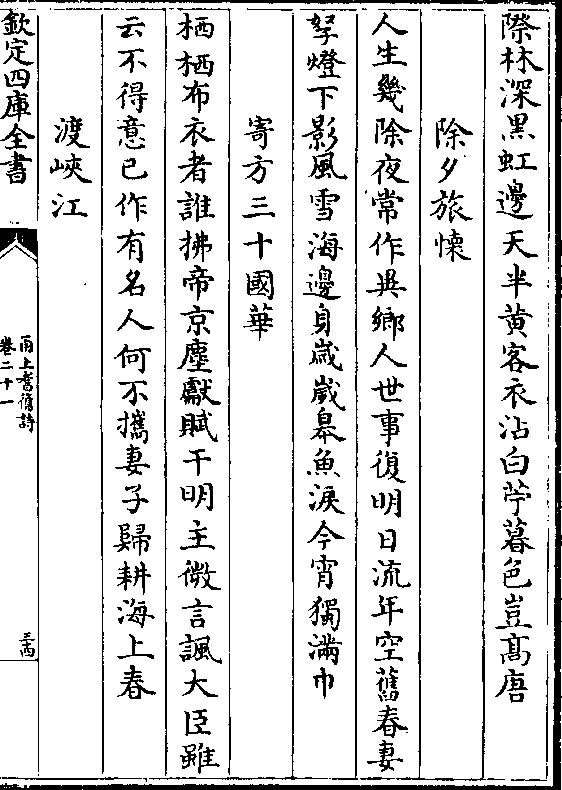 際林深黒虹邊天半黄客衣沾白苧暮色豈髙唐
除夕旅懐
人生幾除夜常作異鄉人世事復明日流年空舊春妻
孥燈下影風雪海邊身歲歲皋魚淚今宵獨滿巾
寄方三十國華
栖栖布衣者誰拂帝京塵獻賦干明主微言諷大臣雖
云不得意已作有名人何不攜妻子歸耕海上春
渡峽江
欽定四庫全書
甬上耆舊詩
卷二十一
三十四